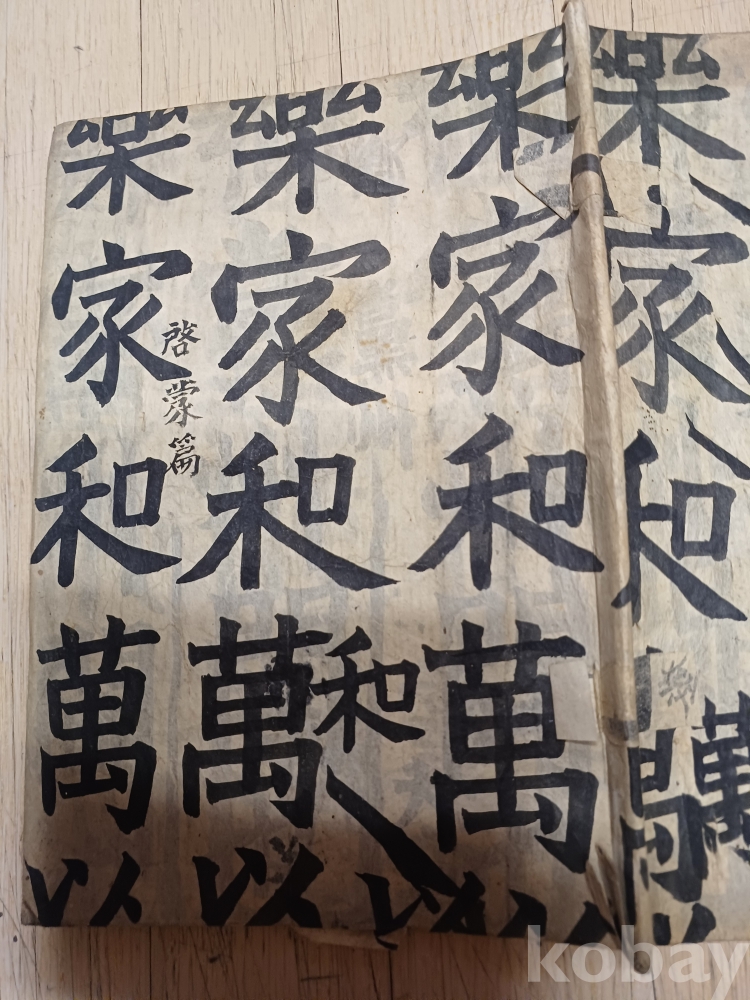 樂家和
萬
樂家和萬以
和
樂家和萬以
啓蒙篇
樂家和萬以
kobay